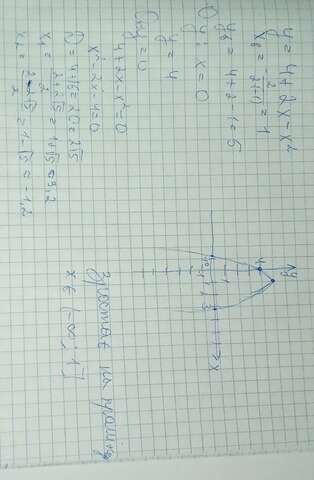 y = 4+2x-x²
x_B = -2/2·(-1) = 1
y_B = 4+2-1=5
Oy: x = 0
y = 4
Ox: y = 0
4+2x-x²=0
x²-2x-4=0
D = 4+16=20=2√5
x₁ = 2+2√5/2 = 1+√5 = 3,2
x₂ = 2-2√5/2 = 1-√5 = -1,2
y
4
1
-1
0
1
3
x
Зростає на
x ∈ (-∞; 1]